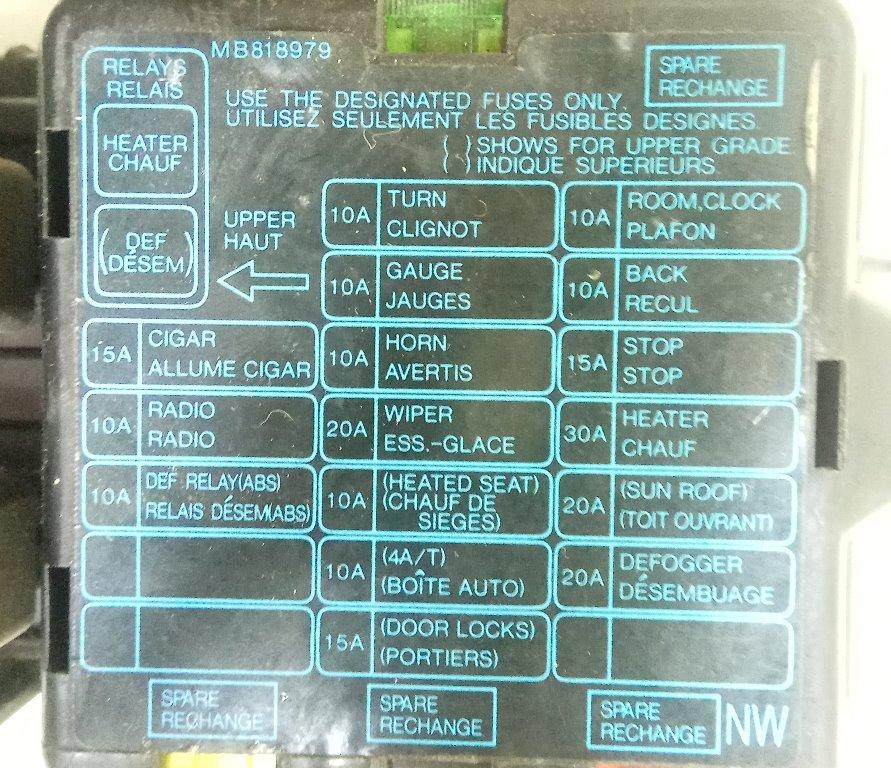 MB818979
SPARE
RECHANGE
RELAYS
RELAIS
HEATER
CHAUF
(DEF
DÉSEM)
USE THE DESIGNATED FUSES ONLY.
UTILISEZ SEULEMENT LES FUSIBLES DESIGNES
( ) SHOWS FOR UPPER GRADE
( ) INDIQUE SUPERIEURS
UPPER
HAUT
10A TURN
CLIGNOT
10A ROOM,CLOCK
PLAFON
10A GAUGE
JAUGES
10A BACK
RECUL
15A CIGAR
ALLUME CIGAR
10A HORN
AVERTIS
15A STOP
STOP
10A RADIO
RADIO
20A WIPER
ESS.-GLACE
30A HEATER
CHAUF
10A DEF RELAY(ABS)
RELAIS DÉSEM(ABS)
10A (HEATED SEAT)
(CHAUF DE
SIEGES)
20A (SUN ROOF)
(TOIT OUVRANT)
10A (4A/T)
(BOÎTE AUTO)
20A DEFOGGER
DÉSEMBUAGE
15A (DOOR LOCKS)
(PORTIERS)
SPARE
RECHANGE
SPARE
RECHANGE
SPARE
RECHANGE
NW